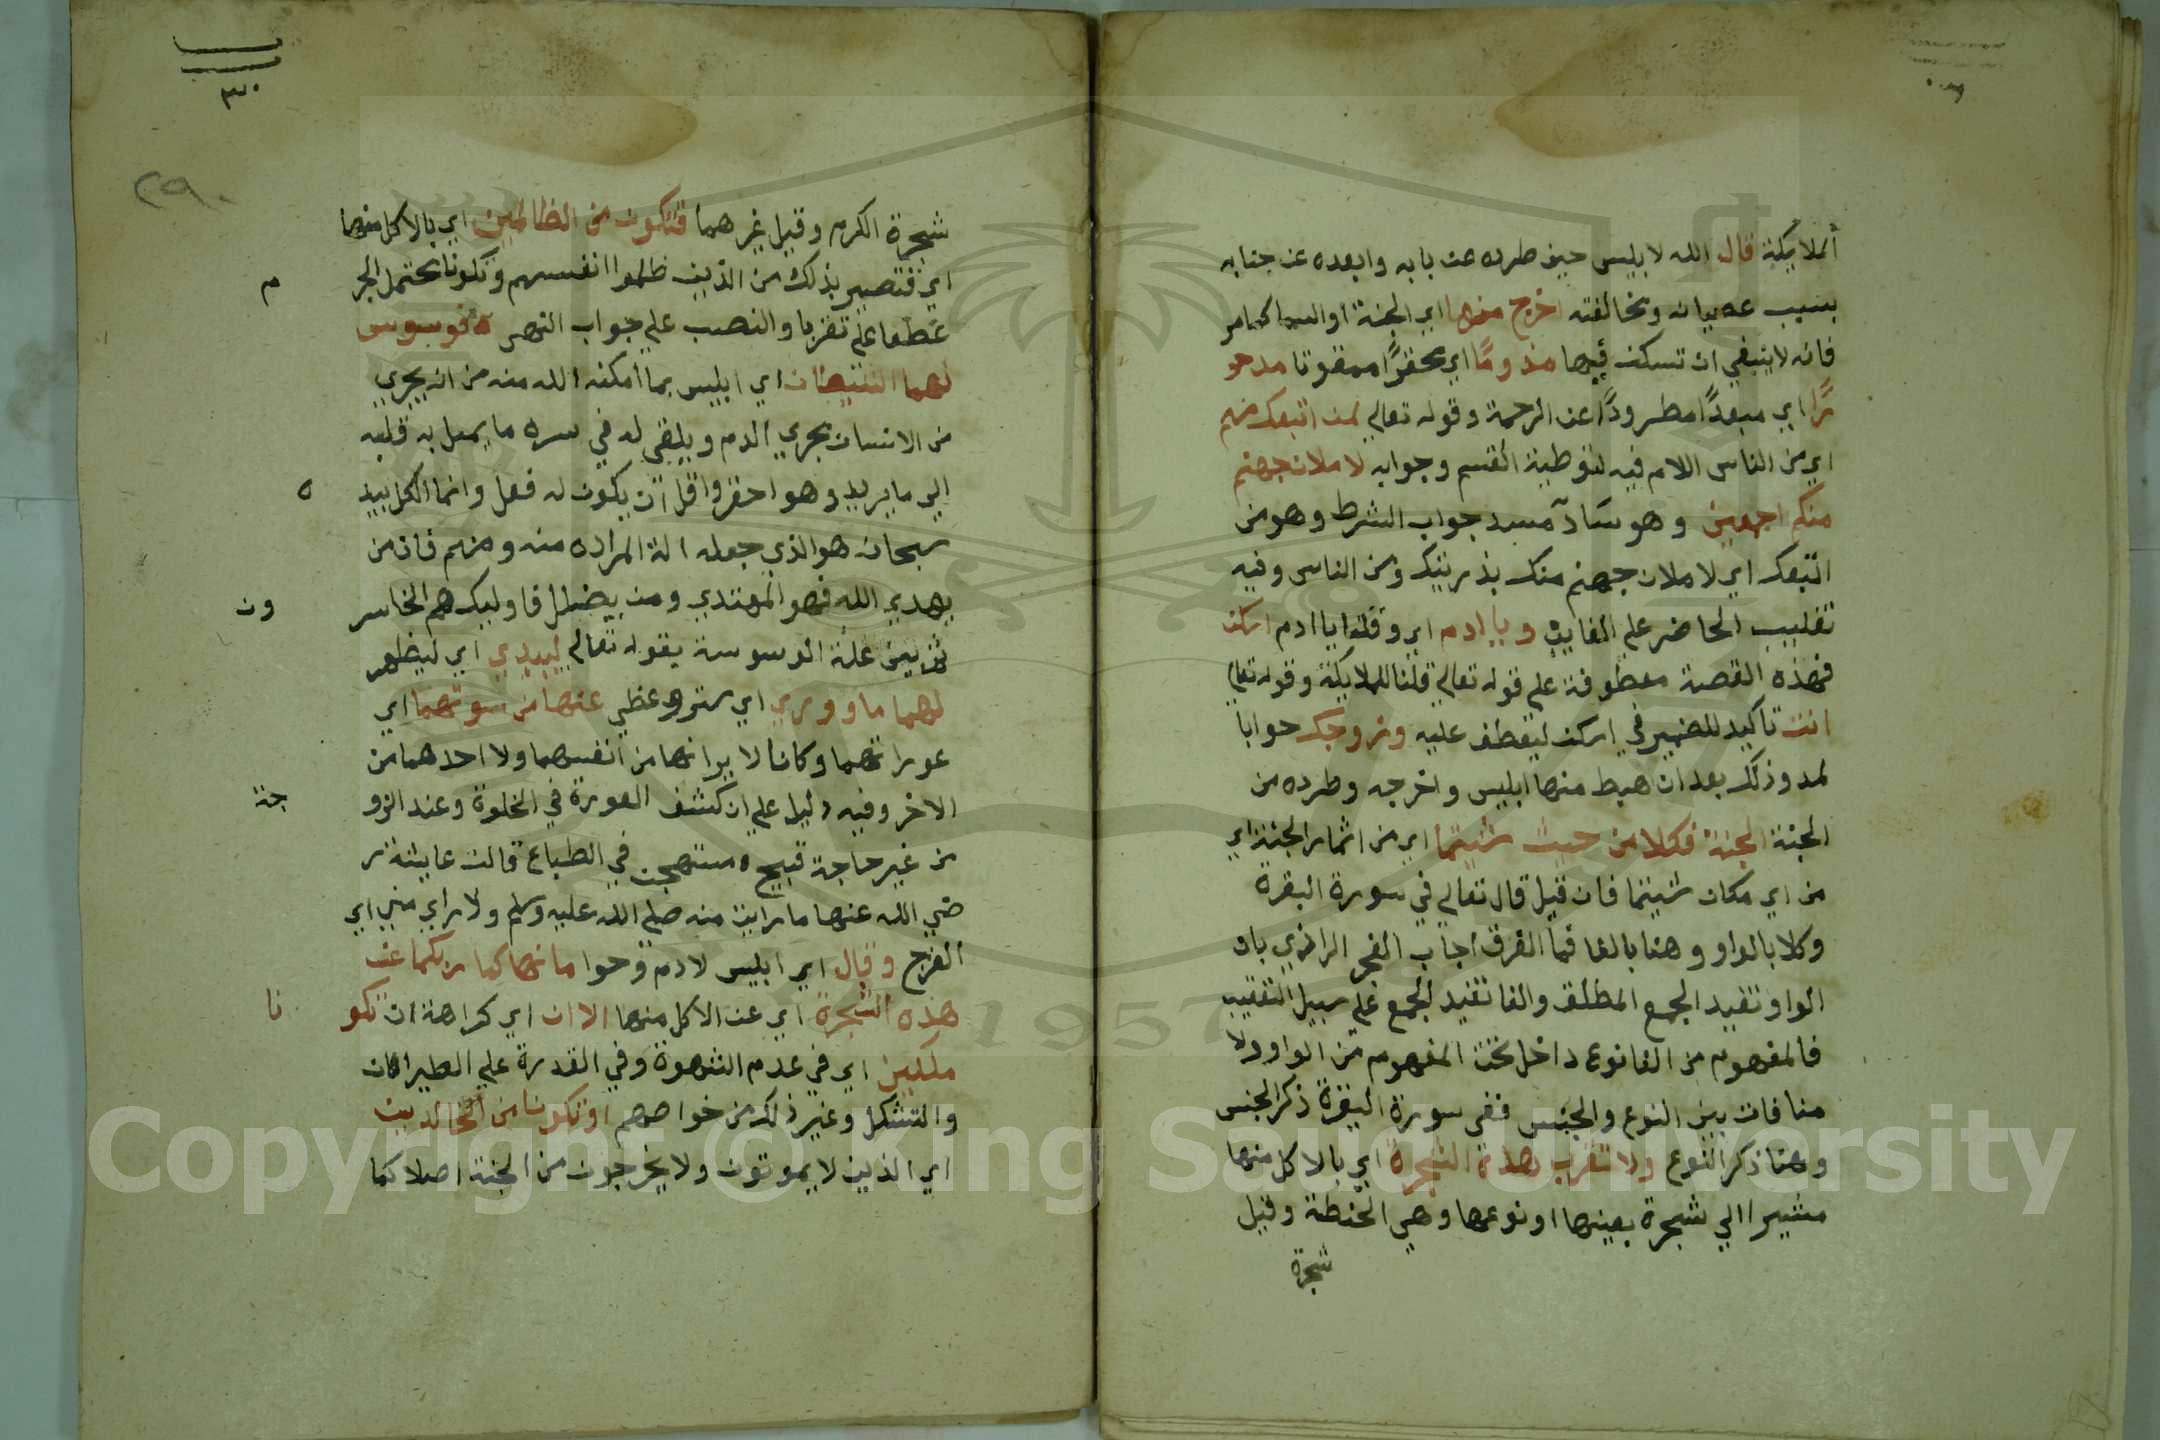 الملايكة قال الله لابليس حين طرده عن بابه وابعده عن جنابه
بسبب عصيانه ومخالفته اخرج منها اي الجنة او السما كما مر
فانه لا ينبغي ان تسكن فيها مذوما اي محقرا ممقوتا مدحو
رًا اي مبعدًا مطرودًا عن الرحمة وقوله تعالي لمن اتبعك منهم
اي من الناس اللام فيه لتوطية القسم وجوابه لاملان جهنم
منكم اجمعين وهو ساد مسد جواب الشرط وهو من
اتبعك اي لاملان جهنم منك بذريتك ومن الناس وفيه
تغليب الحاضر علي الغايب ويا ادم اي وقلنا يا ادم اسكن
فهذه القصة معطوفة علي قوله تعالي قلنا للملايكة وقوله تعالي
انت تاكيد للضمير في اسكن ليعطف عليه وزوجك حوابا
لمد وذلك بعد ان هبط منها ابليس واخرجه وطرده من
الجنة الجنة فكلا من حيث شيتما اي من اثمار الجنة اي
من اي مكان شيتما فان قيل قال تعالي في سورة البقرة
وكلا بالواو وهنا بالفا فما الفرق اجاب الفخر الرازي بان
الواو تفيد الجمع المطلق والفا تفيد الجمع علي سبيل التعقيب
فالمفهوم من الفا نوع داخل تحت المفهوم من الواو ولا
منافات بين النوع والجنس ففي سورة البقرة ذكر الجنس
وهنا ذكر النوع ولا تقربا هذه الشجرة اي بالاكل منها
مشيرا الي شجرة بعينها او نوعها وهي الحنطة وقيل
شجرة
٣٠
٢٩٠
شجرة الكرم وقيل غيرهما فتكونا من الظالمين اي بالاكل منها
اي فتصير بذلك من الذين ظلموا انفسهم وتكونا يحتمل الجر م
عطفا علي تقربا والنصب علي جواب النهي فوسوس
لهما الشيطان اي ابليس بما امكنه الله منه من انه يجري
من الانسان مجري الدم ويلقي له في سره ما يميل به قلبه
الي ما يريد وهو احقر واقل ان يكون له فعل وانما الكل بيد ه
سبحانه هو الذي جعله الة لمراده منه ومنهم فان من
يهدي الله فهو المهتدي ومن يضلل فاوليك هم الخاسر ون
ثم بين علة الوسوسة بقوله تعالي ليبدي اي ليظهر
لهما ما ووري اي ستر وغطي عنهما من سوتهما اي
عوراتهما وكانا لا يرانها من انفسهما ولا احدهما من
الاخر وفيه دليل علي ان كشف العورة في الخلوة وعند الزو جة
من غير حاجة قبيح مستهجن في الطباع قالت عايشة ر
ضي الله عنها ما رايت منه صلي الله عليه وسلم ولا راي مني اي
الفرج وقال اي ابليس لادم وحوا ما نهاكما ربكما عن
هذه الشجرة اي عن الاكل منها الا ان اي كراهة ان تكو نا
ملكين اي في عدم الشهوة وفي القدرة علي الطيران
والتشكل وغير ذلك من خواصهم او تكونا من الخالدين
اي الذين لا يموتون ولا يخرجون من الجنة اصلا كما
Copyright © King Saud University
1957